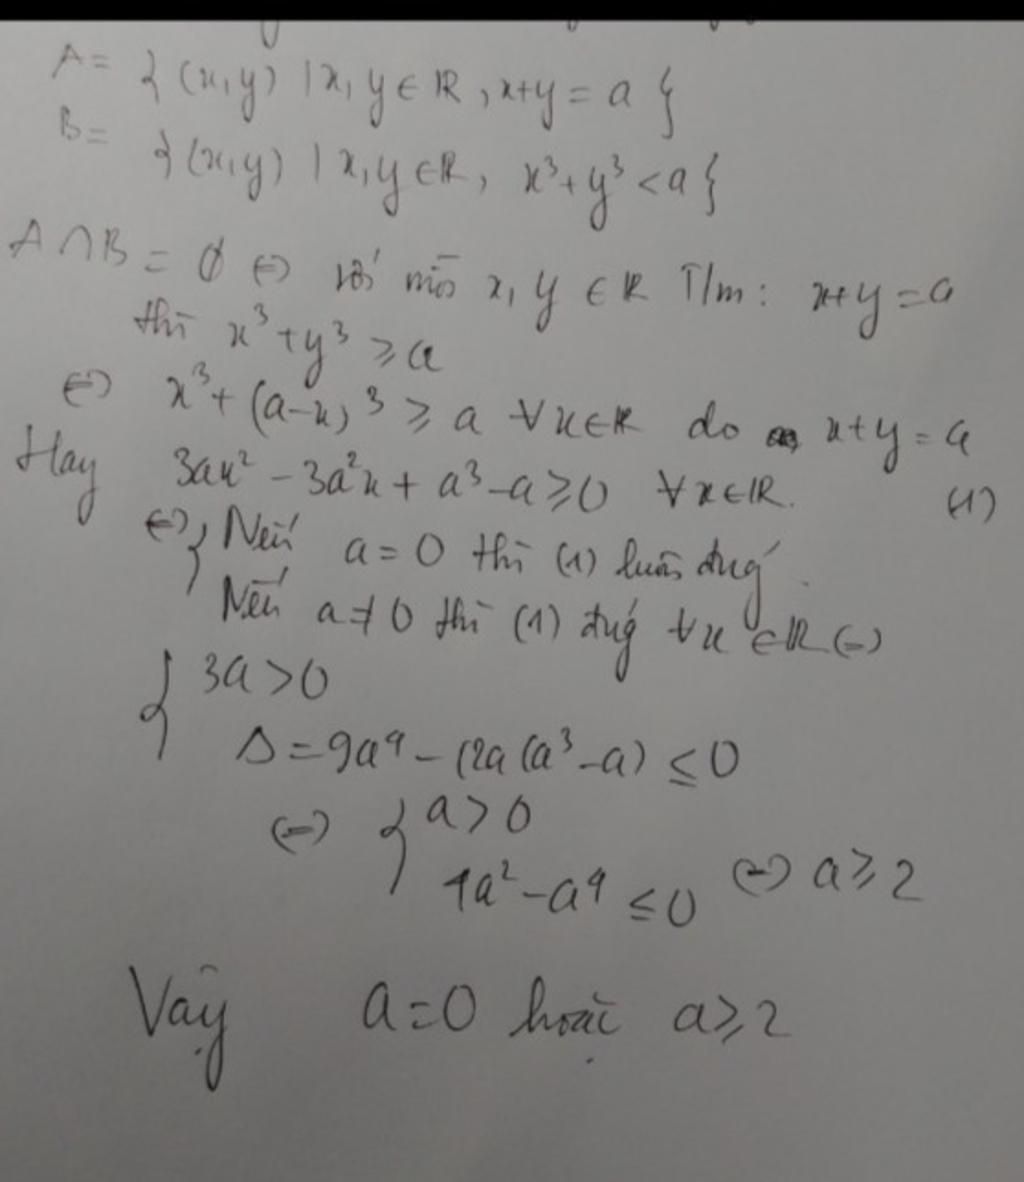 A = { (x,y) | x, y ∈ ℝ, x+y = a }
B = { (x,y) | x, y ∈ ℝ, x³ + y³ < a }
A ∩ B = ∅ ⇔ với mỗi x, y ∈ ℝ T/m: x+y = a
thì x³ + y³ ≥ a
⇔ x³ + (a-x)³ ≥ a ∀x∈ℝ do x+y = a
Hay 3ax² - 3a²x + a³ - a ≥ 0 ∀x∈ℝ. (1)
⇔ { Nếu a = 0 thì (1) luôn đúng.
Nếu a ≠ 0 thì (1) đúng ∀x ∈ ℝ ⇔
{ 3a > 0
Δ = 9a⁴ - 12a(a³ - a) ≤ 0
⇔ { a > 0
4a² - a⁴ ≤ 0 ⇔ a ≥ 2
Vậy a = 0 hoặc a ≥ 2